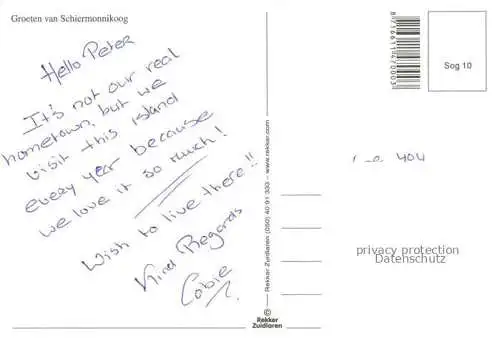 Groeten van Schiermonnikoog
Hello Peter
It's not our real
hometown, but we
visit this island
every year because
we love it so much!
Wish to live there!!
Kind Regards
Cobie
Rekker Zuidlaren (050) 40 91 333 – www.rekker.com
©
Rekker
Zuidlaren
8716611470003
Sog 10
404
privacy protection
Datenschutz